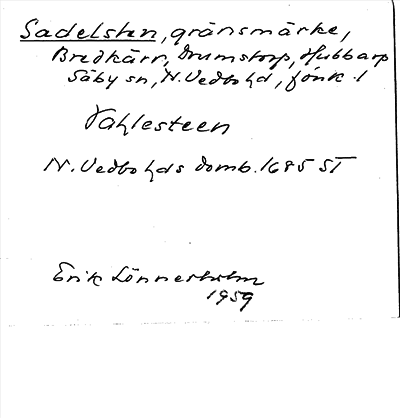 Sadelsten, gränsmärke,
Bredkärr, Drumstorp, Hubbarp
Säby sn, N. Vedbo hd, Jönk. l
Vahlesteen
N. Vedbo hds domb. 1685 ST
Erik Lönnerholm
1959